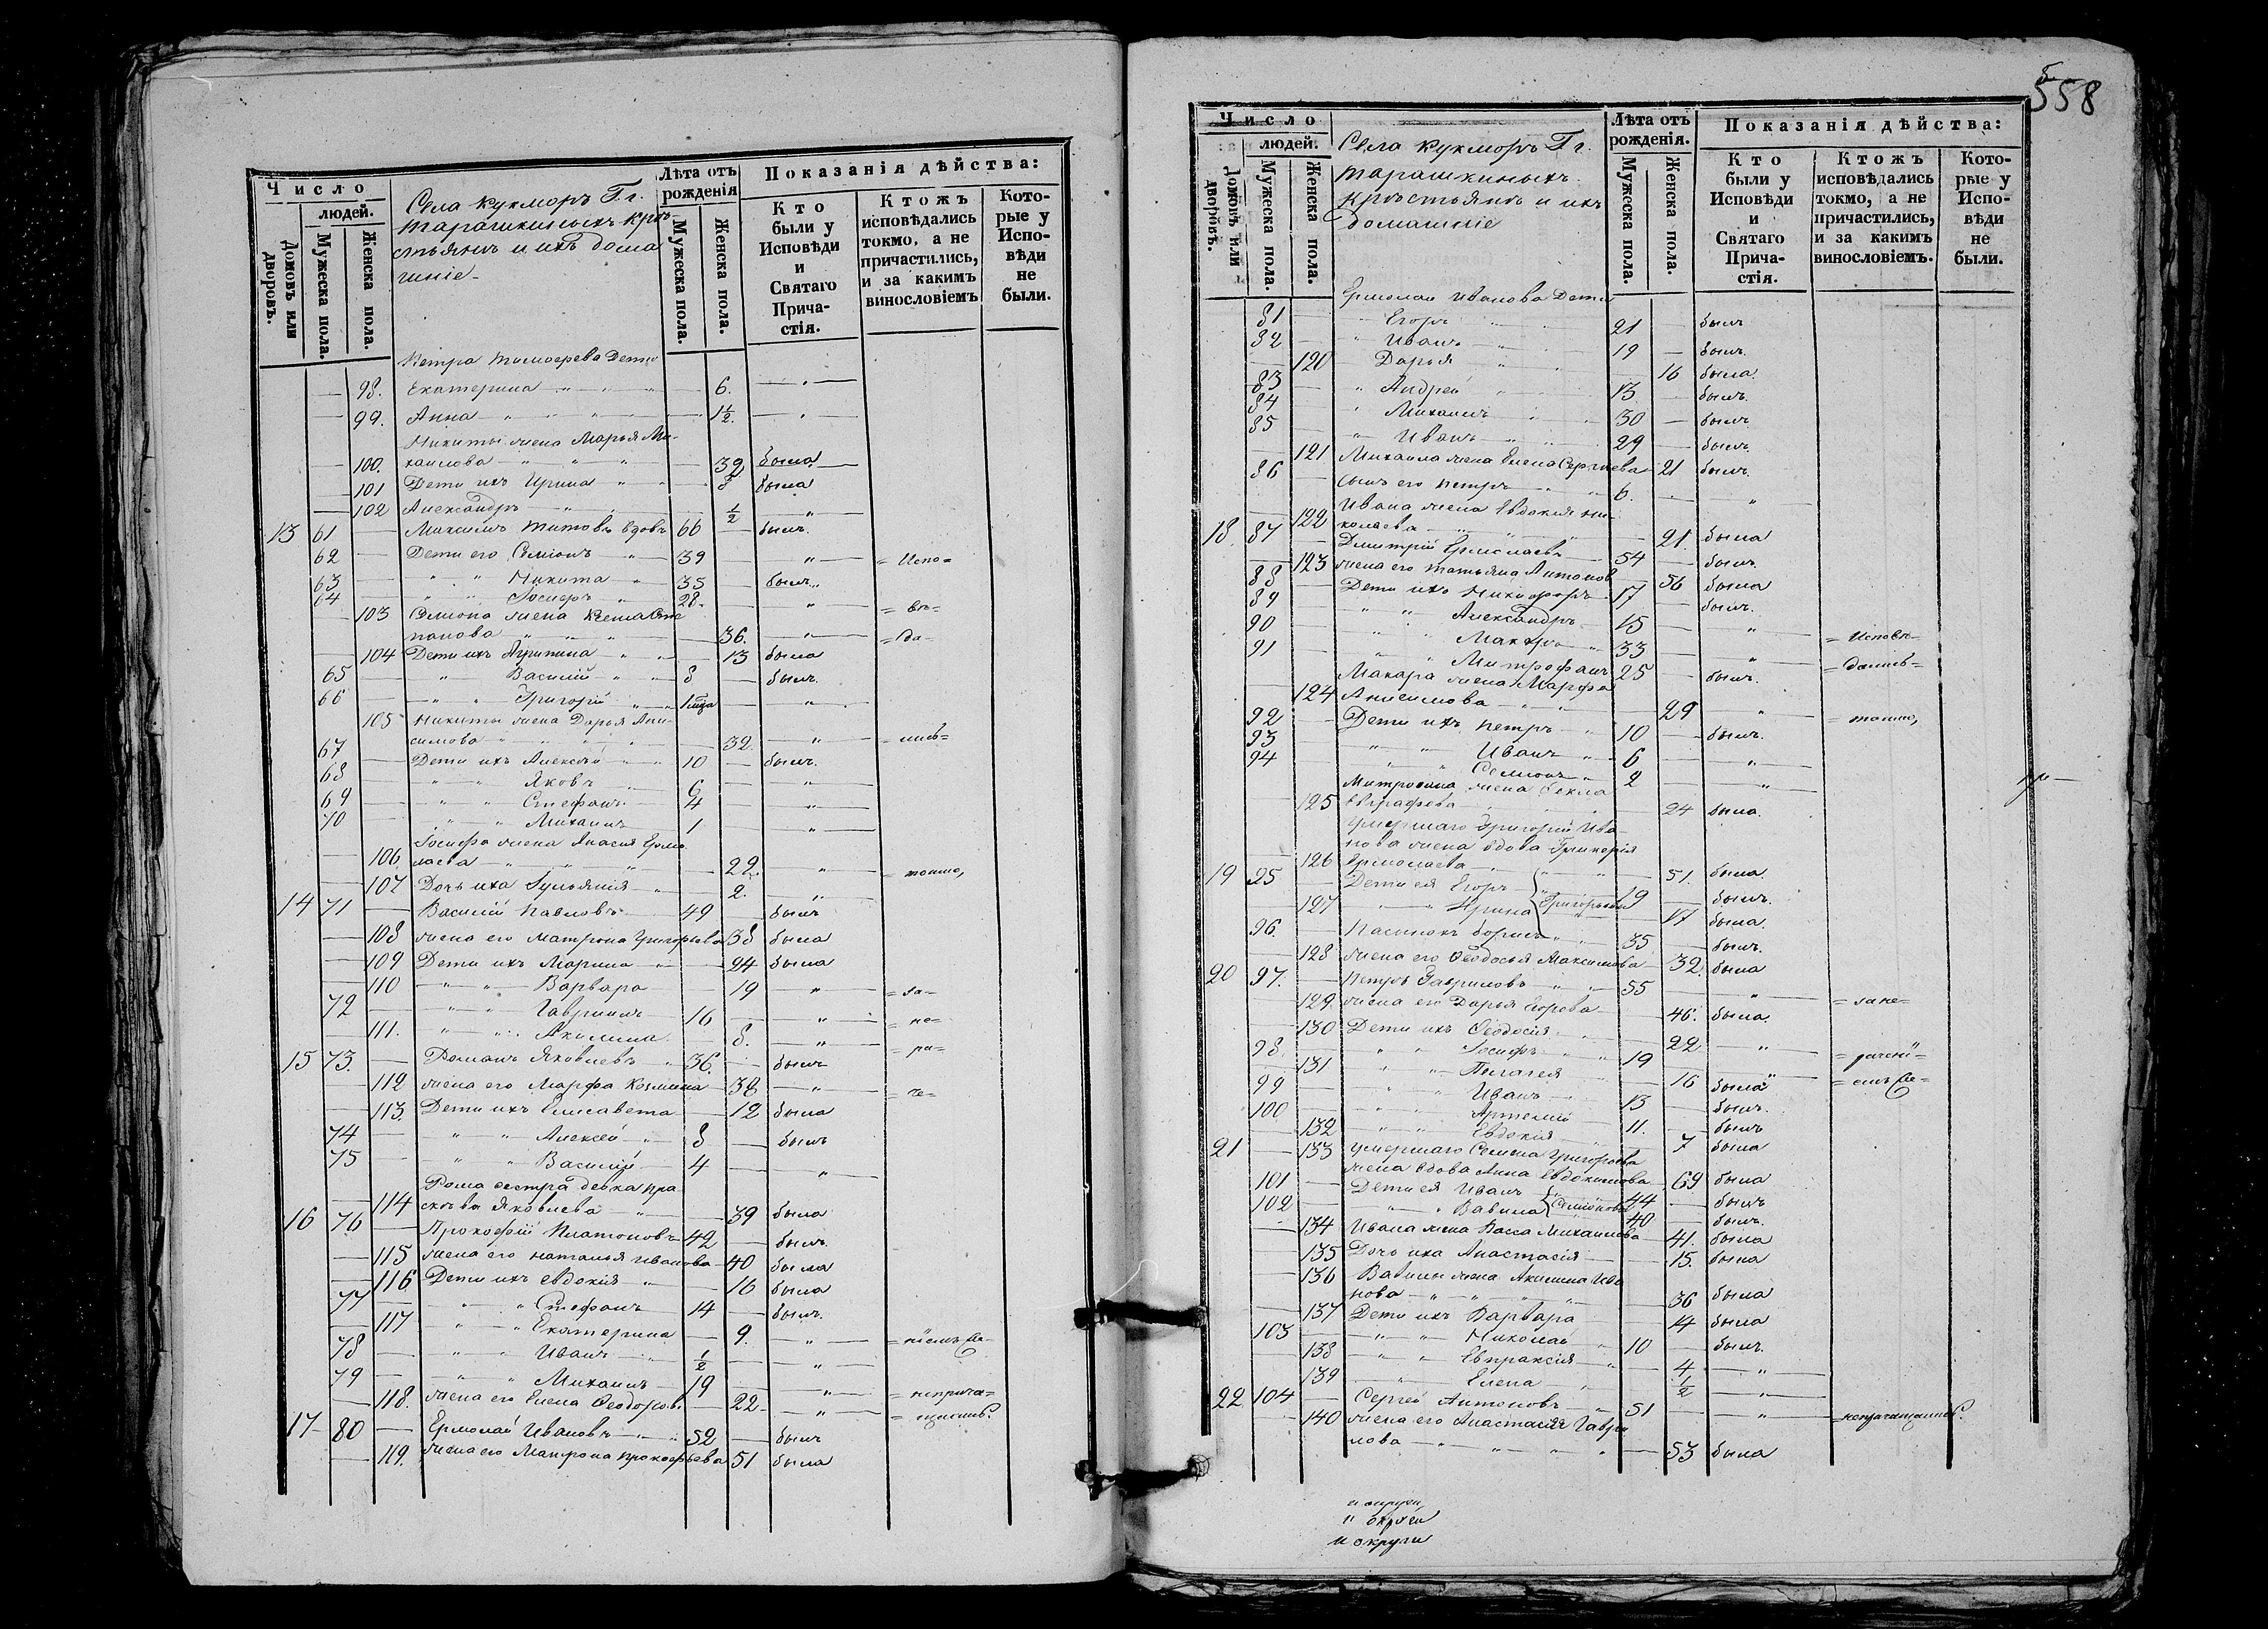 Число
людей.
Домовъ или дворовъ.
Мужеска пола.
Женска пола.
Села Кукморъ Г. г.
Тарашкиныхъ кре-
стьянъ и ихъ дома
шніе
Лѣта отъ рожденія
Мужеска пола.
Женска пола.
Показанія дѣйства:
Кто были у Исповѣди и Святаго Прича-стія.
Ктожъ исповѣдались токмо, а не причастились, и за какимъ винословіемъ
Кото-рые у Испо-вѣди не были.
Петра Тимоѳеева Дети
— 98. Екатерина " — 6. — " —
— 99. Анна " " — 1½. — " —
Никиты жена Марья Ми-
— 100. хаилова — " — 32 была
— 101 Дети ихъ Ирина " — 8 была
— 102 Александръ — ½ "
13 61 — Максимъ Титовъ вдовъ 66 — былъ.
62 — Дети его Семіонъ " 39 — " = Испо=
63 — " " Никита " 35 — былъ.
64 — " " Іосифъ " 28. — "
— 103 Семиона жена Ксенія Сте
панова " " — 36. — " = вѣ=
= да=
— 104 Дети ихъ Агрипина " — 13 была
65 — " Василій " 8 — былъ.
66 — " " Григорій " 1 " "
105 Никиты жена Дарья Ани-
симова " " — 32. — " = лись=
67 — Дети ихъ Алексѣй — 10 — былъ.
68 — " " Яковъ 6 — "
69 — " " Стефанъ 4 — "
70 — " " Михаилъ 1 — "
Іосифа жена Анасія Ермо
— 106 лаева — " " — 22. " = токмо,
— 107 Дочь ихъ Іульянія — 2. "
14 71 — Василій Павловъ — 49 — былъ
— 108 жена его Матрона Григорьева 38 была
— 109 Дети ихъ Марина — 24 была
— 110 — " " Варвара — 19 " = за=
72 — " " Гавріилъ 16 — " = не=
— 111. — " " Акилина — 8. — "
15 73. — Романъ Яковлевъ " 36. — былъ = ра=
— 112 жена его Марфа Козмина — 38 — " = че=
— 113. Дети ихъ Елисавета — 12 была
74 — " " Алексѣй " 8 — былъ
75 — " " Василій 4 — "
Рома сестра девка пра
— 114 сковья Яковлева — " — 39 была
16 76 — Прокофій Платоновъ 42 — былъ.
— 115 жена его Наталья Иванова 40 была
— 116 Дети ихъ Евдокія " — 16 была
77 — " " Стефанъ 14 — былъ.
— 117 " " Екатерина — 9. — "
78 — " " Иванъ ½ — " = ніемъ
79 — " " Михаилъ 19 — " = неприча=
— 118. жена его Елена Ѳеодоров. — 22 — " = щались.
17 80 — Ермолай Ивановъ — 52 — былъ
— 119. жена его Матрона Прокофьева 51 была
558
Число
людей.
Домовъ или дворовъ.
Мужеска пола.
Женска пола.
Села Кукморъ Г г.
Тарашкиныхъ
Крестьянъ и ихъ
домашніе
Лѣта отъ рожденія.
Мужеска пола.
Женска пола.
Показанія дѣйства:
Кто были у Исповѣди и Святаго Прича-стія.
Ктожъ исповѣдались токмо, а не причастились, и за какимъ винословіемъ.
Кото-рые у Испо-вѣди не были.
Ермолаи Иванова Дети
81 — Егоръ " 21 — былъ
82 — " Иванъ " 19 — былъ.
— 120 Дарья " — 16 была.
83 — " Андрей " 13 — былъ.
84 — " Михаилъ " 30 — былъ
85 — " Иванъ " 29 — былъ.
— 121 Михаила жена Елена Сергіева 21 былъ.
86 — сынъ его Петръ " 6. — "
Ивана жена Евдокія Ни-
— 122 колаева " " — 21. была
18. 87 — Дмитрій Ермолаевъ — 54 — былъ.
— 123 жена его Татьяна Антонов — 56 была
88 — Дети ихъ Никифоръ 17 — былъ.
89 — " " Александръ 15 — "
90 — " " Макаръ " 33 — " = Исповѣ=
91 — " " Митрофанъ 25 — былъ. = дались=
Макара жена Марфа
— 124 Анисимова — " — 29 " = токмо,
92 — Дети ихъ Петръ " 10 — былъ.
93 — " " Иванъ 6 — "
94 — " " Семіонъ 2 — "
Митрофана жена Ѳекла
— 125 Евграфова " — 24 была.
Умершаго Григорій Ива-
нова жена вдова Гликерія
— 126 Ермолаева " " — 51. была
19 95 — Дети ея Егоръ Григорьевы 19 — былъ.
— 127 " " Ирина — 17 была.
96 — Пасынокъ Борисъ " 35 — былъ.
— 128 жена его Ѳеодосья Максимова 32. была
20 97. — Петръ Гавриловъ " 55 — " = зане=
— 129. жена его Дарья Егорова — 46. была.
— 130 Дети ихъ Ѳеодосія " — 22 " = раченї=
98. — " " Іосифъ " 19 — "
— 131 " " Пелагея — 16 была = емъ
99 — " " Иванъ 13 — былъ.
100 — " " Артемій 11. — былъ
— 132 " " Евдокія — 7 была
21 — 133 умершаго Семена Григорьева
жена вдова Анна Евдокимова 69 была
101 — Дети ея Иванъ Семіоновы 44 — былъ
102 — " " Вавила 40 — былъ.
— 134 Ивана жена Васса Михаилова 41. была
— 135 Дочь ихъ Анастасія — 15. была
— 136 Вавилы жена Акилина Ива
нова — " " — 36 была
— 137 Дети ихъ Варвара — 14 была
103 — " " Николай " 10 — былъ.
— 138 — " " Евпраксія — 4 — "
— 139 — " " Елена " ½ — "
22 104 — Сергей Антоновъ " 51 — " = непричащались.
— 140 жена его Анастасія Гаври
лова — " " " — 53 была
и округи
и округи
и округи